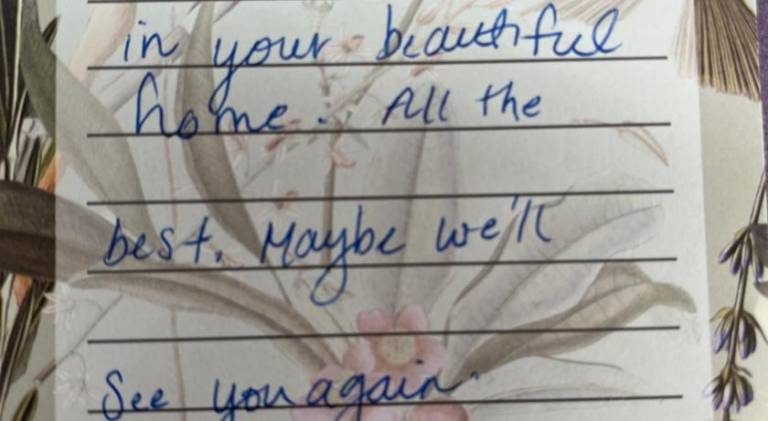 in your beautiful
home. All the
best. Maybe we'll
See you again.